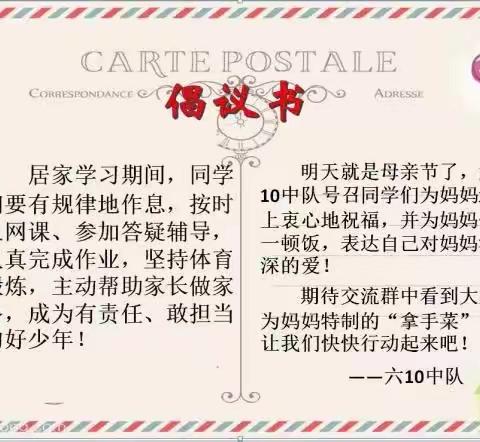 CARTE POSTALE
CORRESPONDANCE
ADRESSE
倡议书
居家学习期间，同学
要有规律地作息，按时
网课、参加答疑辅导，
真完成作业，坚持体育
炼，主动帮助家长做家
，成为有责任、敢担当
好少年！
明天就是母亲节了，
10中队号召同学们为妈妈
上衷心地祝福，并为妈妈
一顿饭，表达自己对妈妈
深的爱！
期待交流群中看到大
为妈妈特制的“拿手菜”
让我们快快行动起来吧！
——六10中队